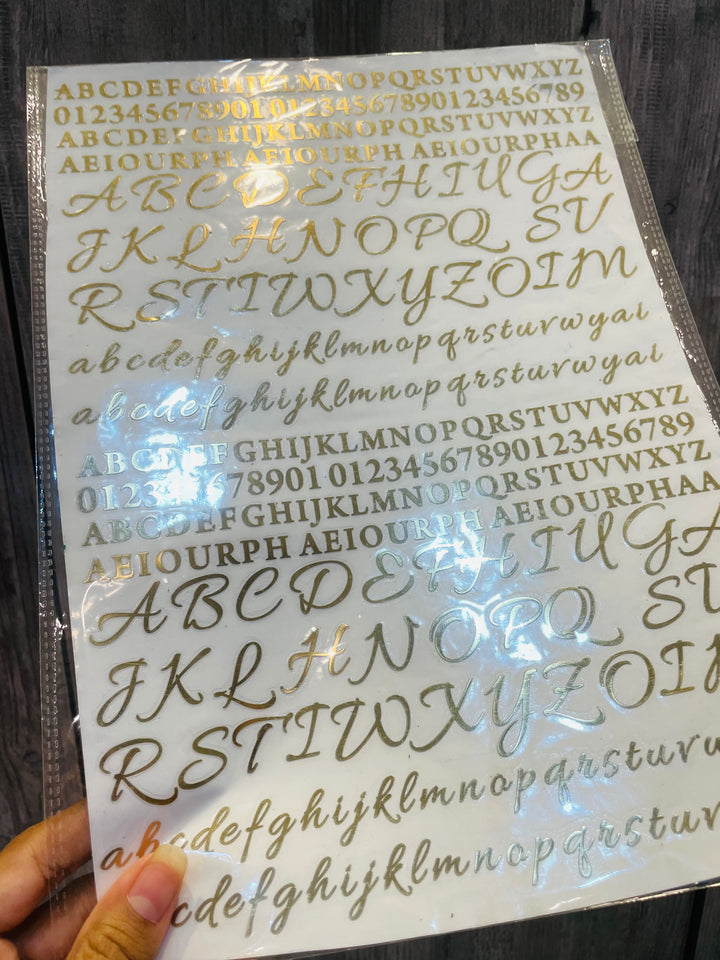 ABCDEFGHIJKLMNOPQRSTUVWXYZ
01234567890101234567890123456789
ABCDEFGHIJKLMNOPQRSTUVWXYZ
AEIOURPH AEIOURPH AEIOURPHAA
ABCDEFHIUGA
JKLHNOPQ SV
RSTIWXYZOIM
abcdefghijklmnopqrstuvwyai
abcdefghijklmnopqrstuvwyai
ABCDEFGHIJKLMNOPQRSTUVWXYZ
0123 78901 01234567890123456789
ABCDEFGHIJKLMNOPQRSTUVWXYZ
AEIOURPH AEIOURPH AEIOURPHAA
ABCDEFHIUGA
JKLHNOPQ SV
RSTIWXYZOI
abcdefghijklmnopqrstuvw
cdefghijklmnopqrstuv